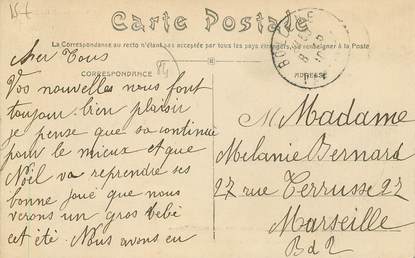 15f
Carte Postale
La Correspondance au recto n'étant pas acceptée par tous les pays étrangers, se renseigner à la Poste
CORRESPONDANCE
ADRESSE
84
Cher Tous
Vos nouvelles nous font
toujour bien plaisir
je pense que sa continue
pour le mieux et que
Noël va reprendre ses
bonne joué que nous
verons un gros bébé
cet été. Nous avons eu
M Madame
Melanie Bernard
27 rue Terrusse 27
Marseille
B d R